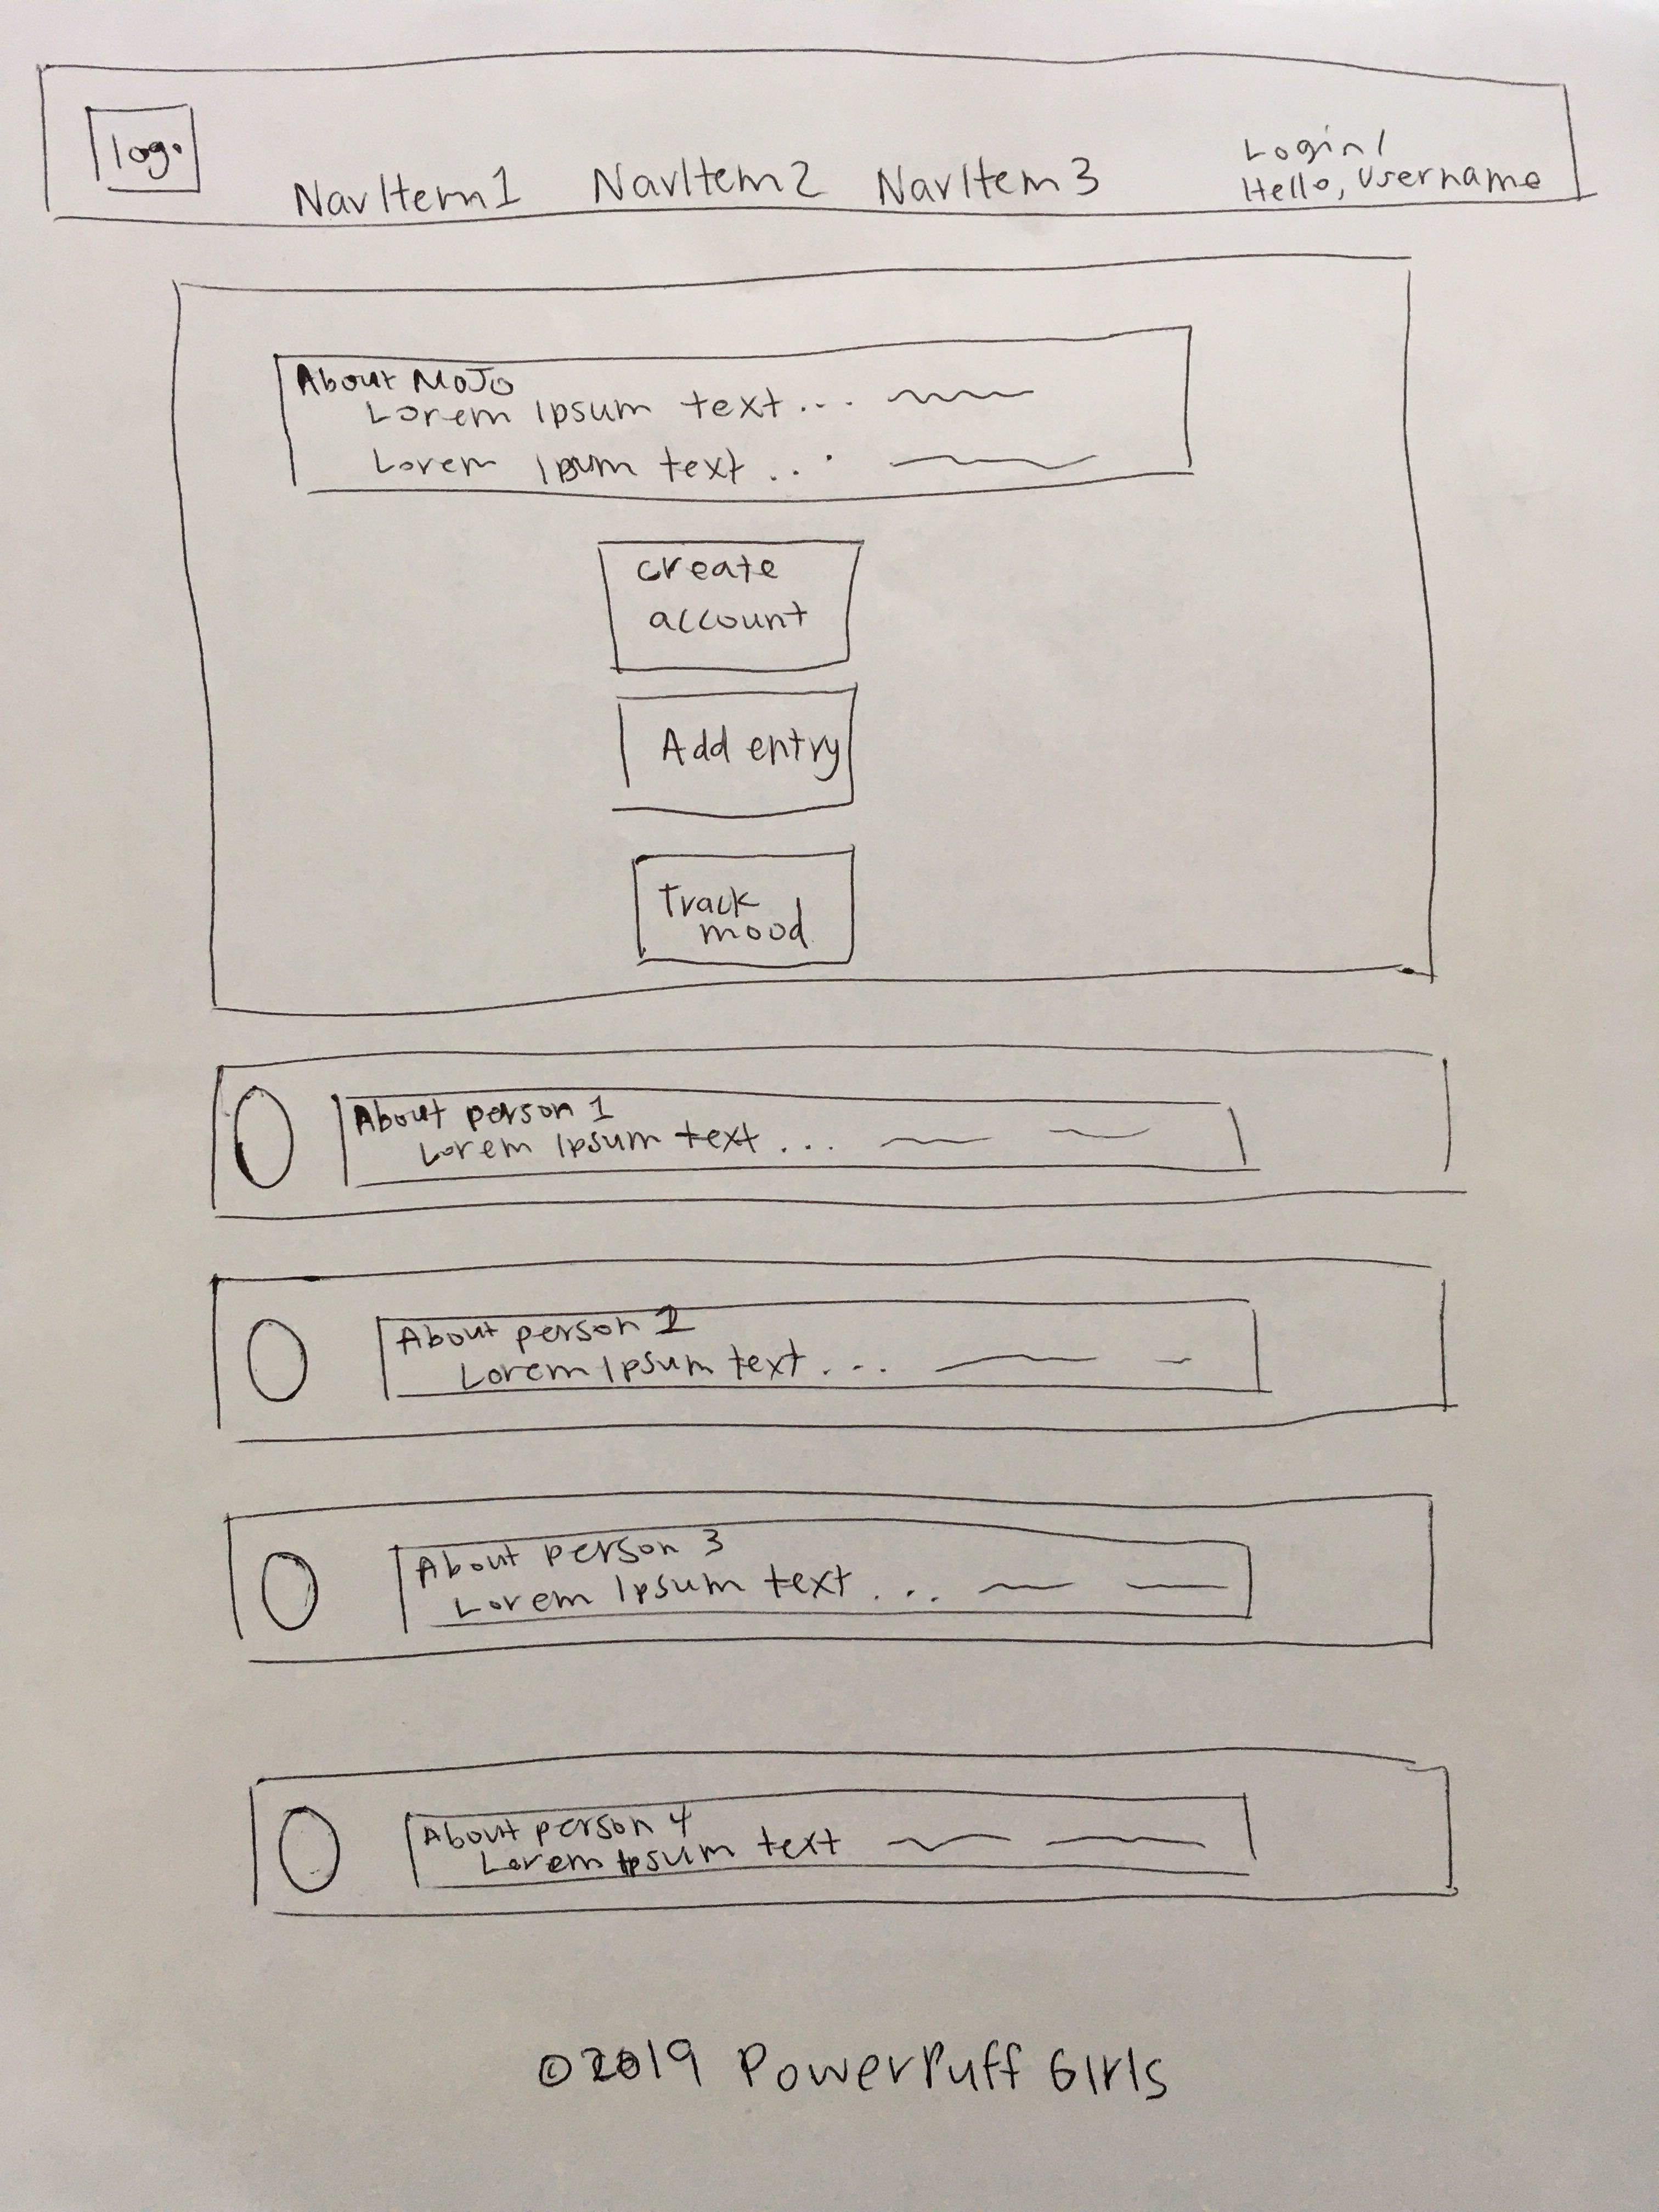 logo
NavItem1 NavItem2 NavItem3
Login/
Hello, Username
About MoJo
Lorem Ipsum text...
Lorem Ipsum text...
create
account
Add entry
Track
mood
About person 1
Lorem Ipsum text...
About person 2
Lorem Ipsum text...
About person 3
Lorem Ipsum text...
About person 4
Lorem Ipsum text
©2019 PowerPuff Girls